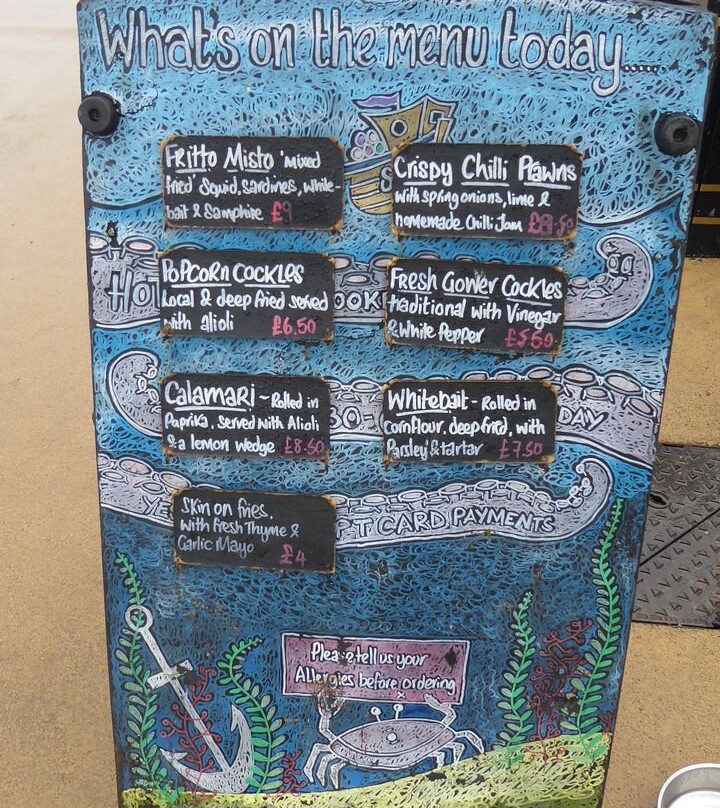 What's on the menu today.....
Fritto Misto 'mixed
fried' Squid, sardines, white-
bait & Samphire £9
Crispy Chilli Prawns
with spring onions, lime &
homemade Chilli Jam £8.50
S
PoPcorn Cockles
Local & deep fried served
with alioli £6.50
Fresh Gower Cockles
traditional with Vinegar
& White Pepper £5.50
HOT
OOK
Calamari - Rolled in
Paprika, served with Alioli
& a lemon wedge £8.50
Whitebait - Rolled in
Cornflour, deep fried, with
Parsley & tartar £7.50
30-
DAY
Skin on fries,
with fresh Thyme &
Garlic Mayo £4
YE
PT CARD PAYMENTS
Please tell us your
Allergies before ordering
x